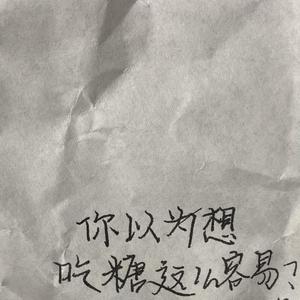 你以为想
吃糖这么容易？